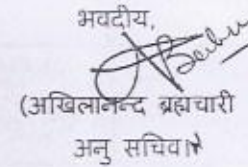 भवदीय,
(अखिलानन्द ब्रह्मचारी
अनु सचिव।